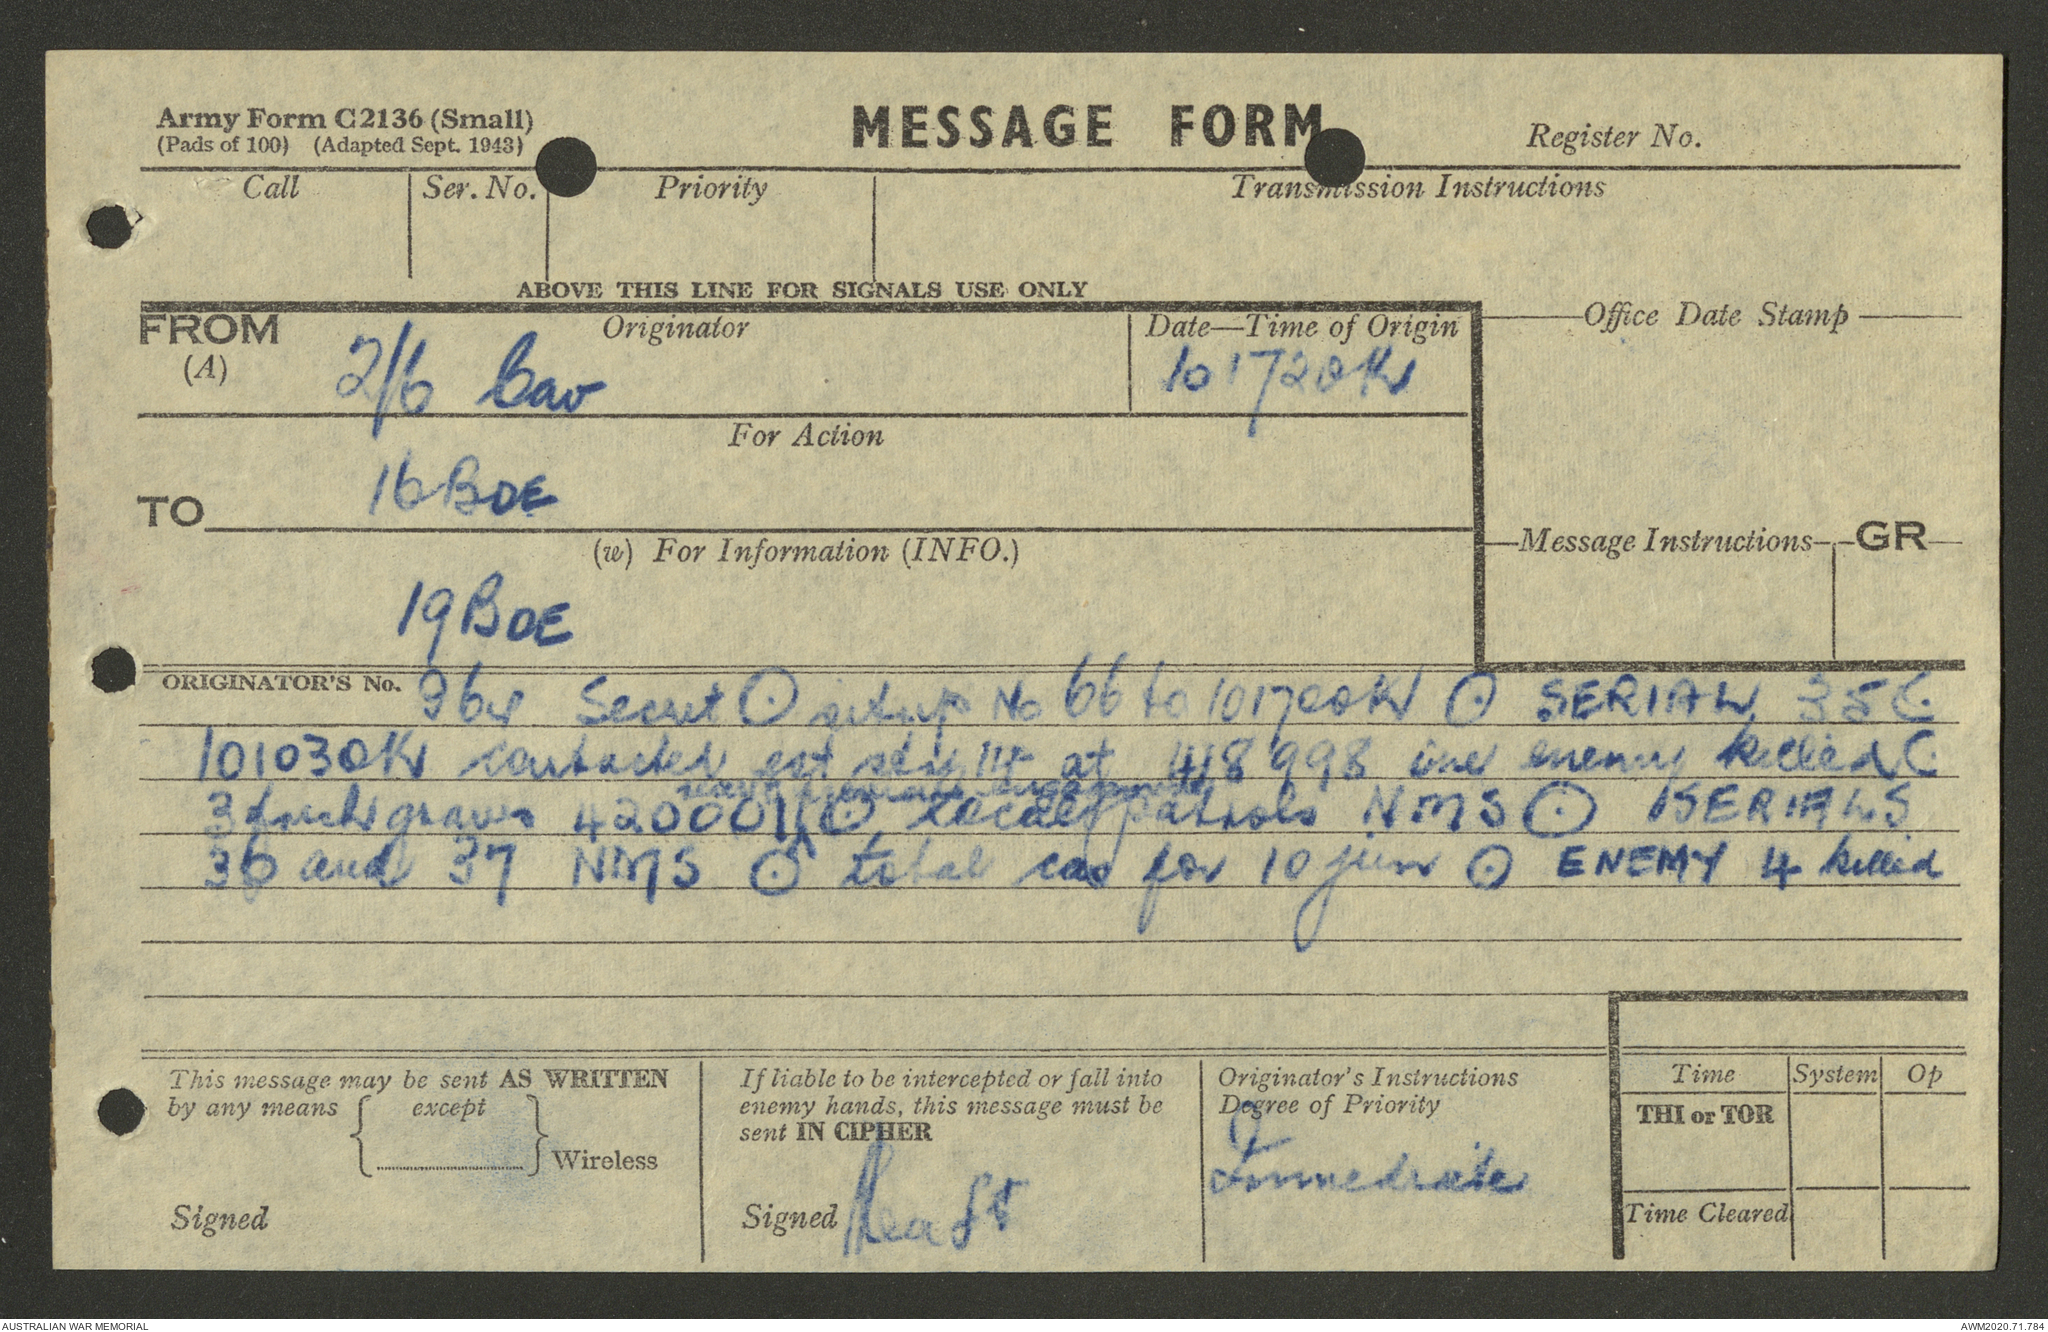 Army Form C2136 (Small)
(Pads of 100) (Adapted Sept. 1943)
MESSAGE FORM
Register No.
Call
Ser. No.
Priority
Transmission Instructions
ABOVE THIS LINE FOR SIGNALS USE ONLY
FROM
(A)
Originator
2/6 Cav
Date—Time of Origin
101720K
Office Date Stamp
For Action
TO
16 BDE
(w) For Information (INFO.)
19 BDE
Message Instructions
GR
ORIGINATOR'S No.
Secret ⊙ sitrep No 66 to 101700K ⊙ SERIAL 35 (
101030K contacted est at 418998 one enemy killed (
3 fresh graves 420001 ⊙ local patrols NMS ⊙ SERIALS
36 and 37 NMS ⊙ total cas for 10 jun ⊙ ENEMY 4 killed
This message may be sent AS WRITTEN
by any means { except }
Wireless
Signed
If liable to be intercepted or fall into
enemy hands, this message must be
sent IN CIPHER
Signed
Originator's Instructions
Degree of Priority
Immediate
Time
System
Op
THI or TOR
Time Cleared
AUSTRALIAN WAR MEMORIAL
AWM2020.71.784